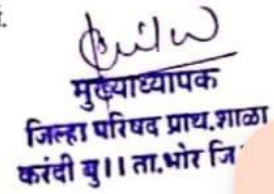 मुख्याध्यापक
जिल्हा परिषद प्राथ.शाळा
करंदी बु।। ता.भोर जि